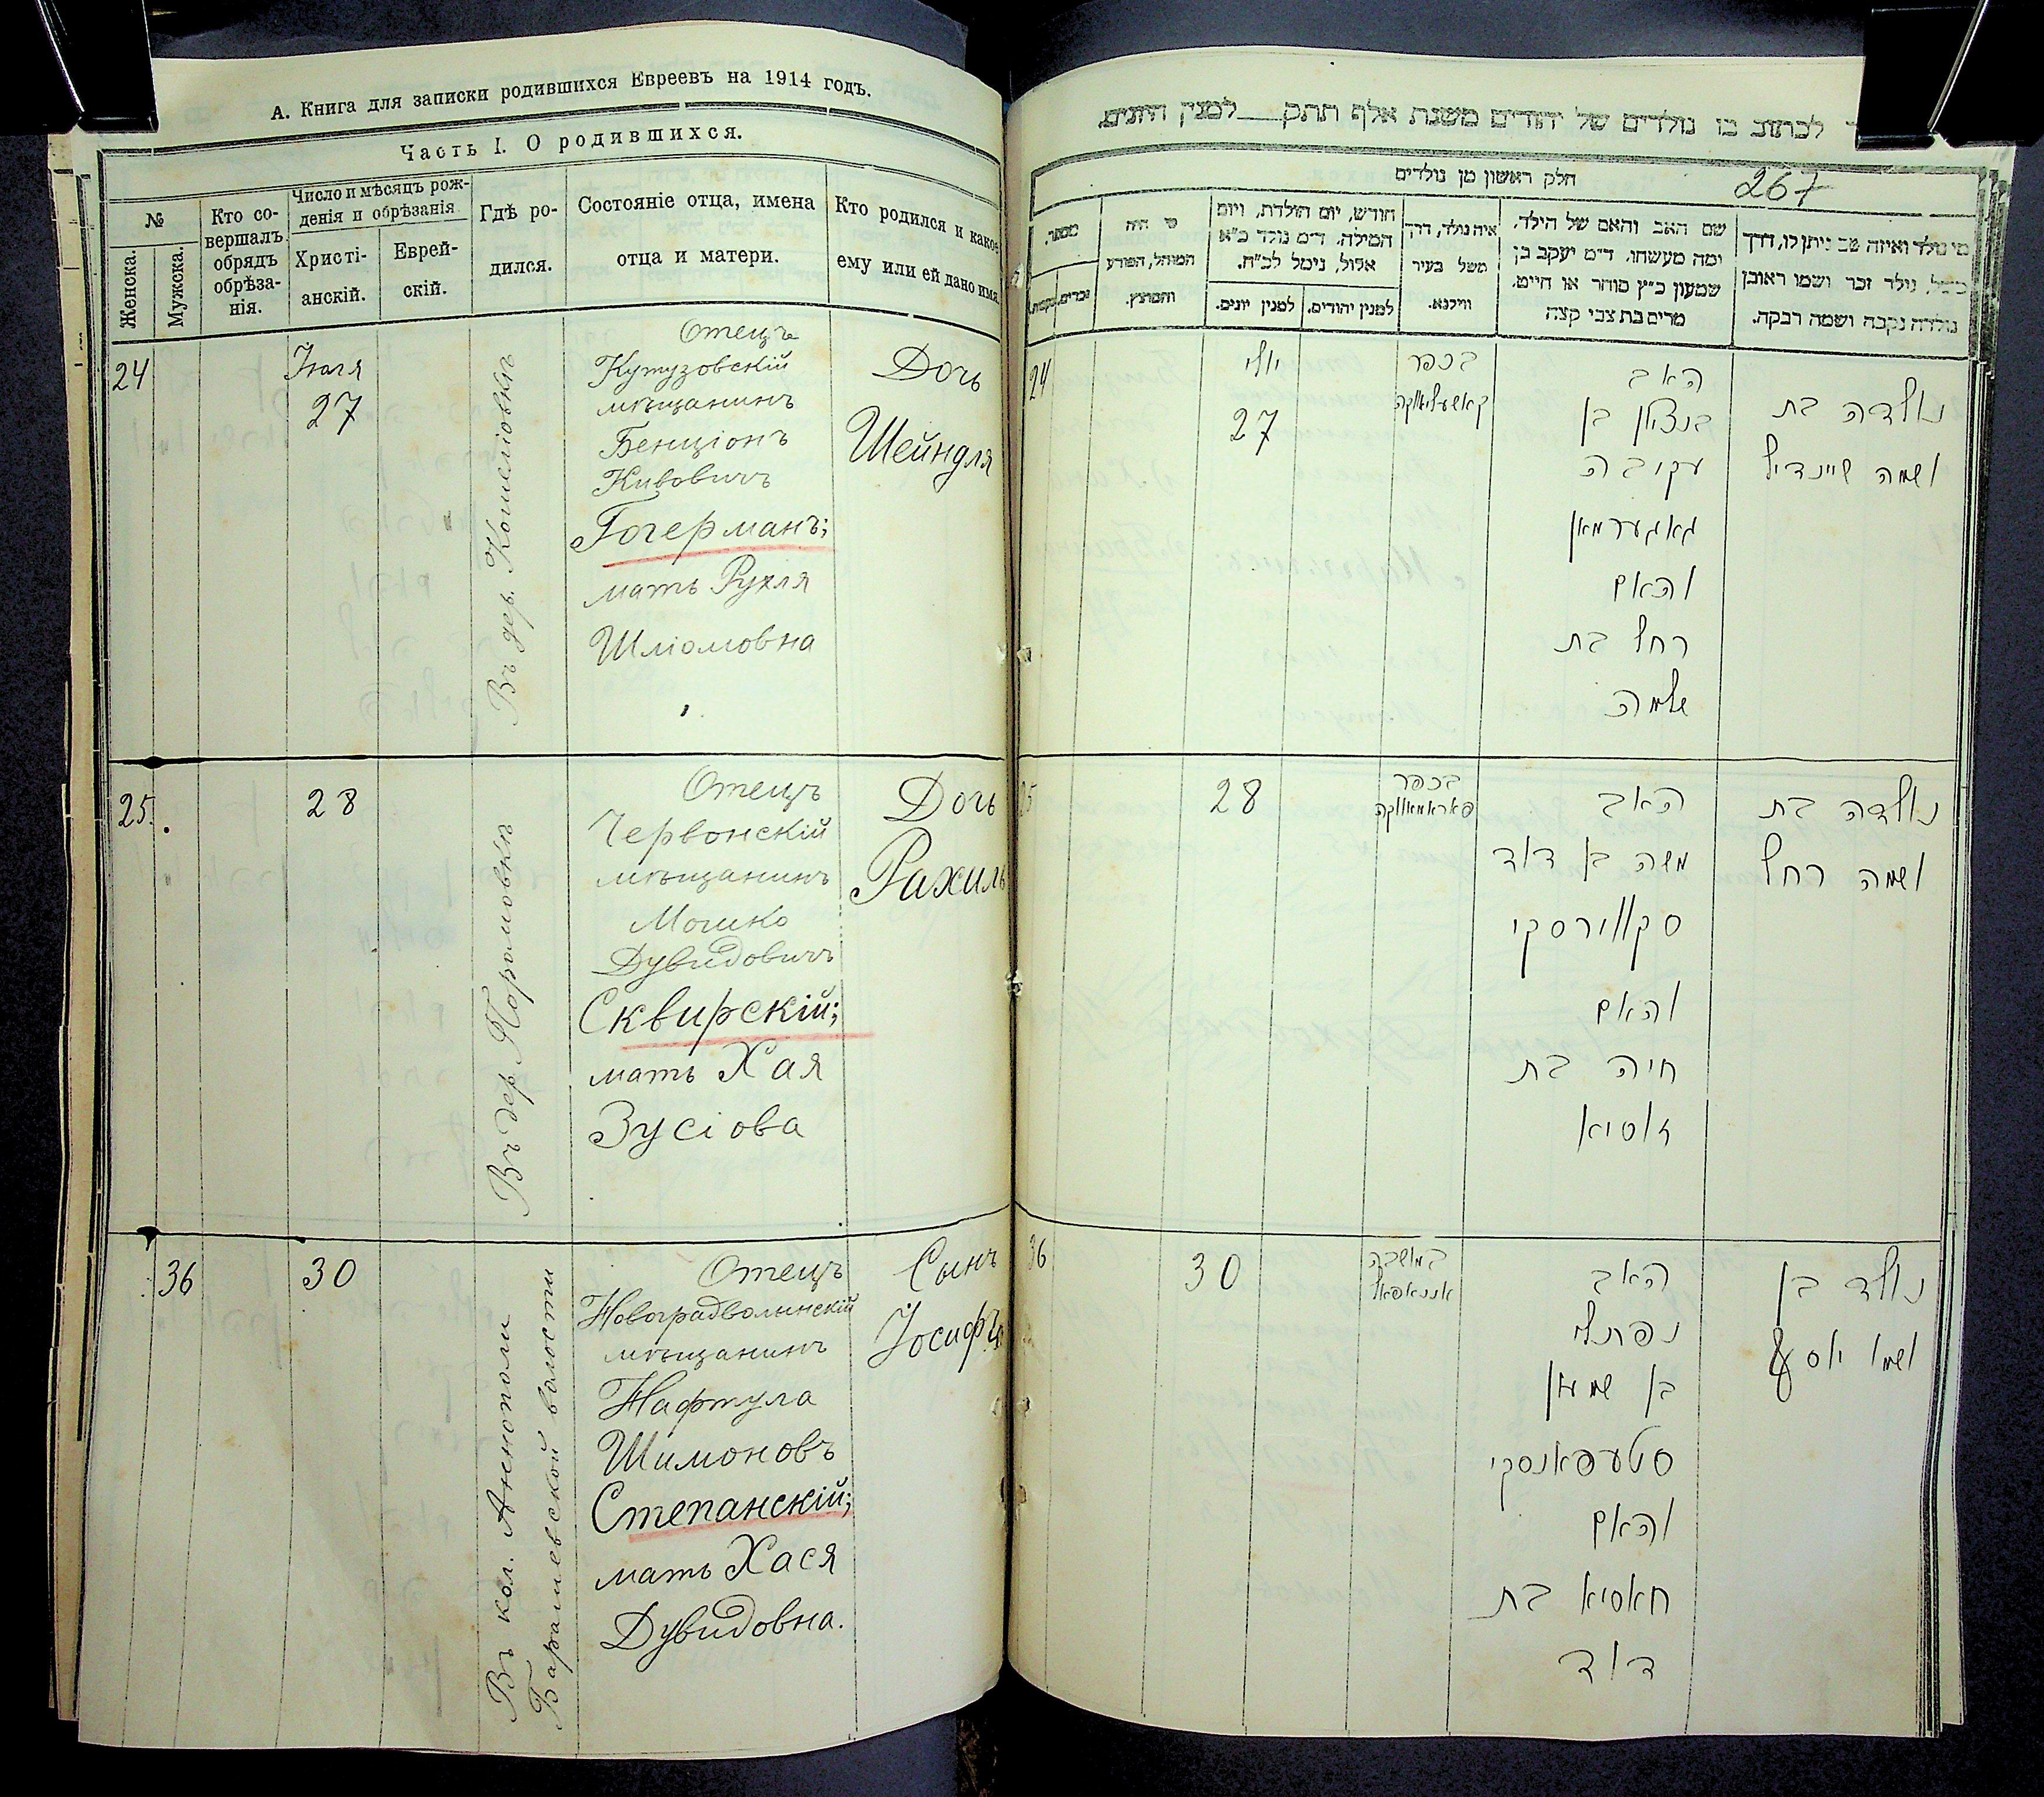 А. Книга для записки родившихся Евреевъ на 1914 годъ.
Часть I. О родившихся.
№
Женска.
Мужска.
Кто со-
вершалъ
обрядъ
обрѣза-
нія.
Число и мѣсяцъ рож-
денія и обрѣзанія
Христі-
анскій.
Еврей-
скій.
Гдѣ ро-
дился.
Состояніе отца, имена
отца и матери.
Кто родился и какое
ему или ей дано имя.
24
Іюля
27
Въ дер. Кошеліовкѣ
Отецъ
Кутузовскій
мѣщанинъ
Бенціонъ
Кивовичъ
Гогерманъ;
мать Рухля
Шліомовна
Дочь
Шейндля
25.
28
Въ дер. Поромовкѣ
Отецъ
Червонскій
мѣщанинъ
Мошко
Дувидовичъ
Сквирскій;
мать Хая
Зусіова
Дочь
Рахиль
36
30
Въ кол. Аннополи
Барашевской волости
Отецъ
Новоградволынскій
мѣщанинъ
Нафтула
Шимоновъ
Степанскій;
мать Хася
Дувидовна.
Сынъ
Іосифъ
לכתוב בו נולדים של יהודים משנת אלף תתק למנין היונים.
חלק ראשון מן נולדים
267
מי נולד ואיזה שם ניתן לו, דרך
משל, נולד זכר ושמו ראובן
נולדה נקבה ושמה רבקה.
שם האב והאם של הילד,
ומה מעשהו. ד״מ יעקב בן
שמעון כ״ץ סוחר או חייט,
מרים בת צבי קצה
איה נולד, דרך
משל בעיר
ווילנא.
חודש, יום הולדת, ויום
המילה. ד״מ נולד כ״א
אלול, נימל לכ״ח.
למנין יהודים.
למנין יונים.
מי היה
המוהל, הפורע
והמוצץ.
מספר.
זכרים.
נקבות.
24
יולי
27
בכפר
קאשעליאווקה
האב
בנציון בן
עקיבה
גאגערמאן
והאם
רחל בת
שלמה
נולדה בת
ושמה שיינדיל
25
28
בכפר
פאראמאווקה
האב
משה בן דוד
סקווירסקי
והאם
חיה בת
זוסיא
נולדה בת
ושמה רחל
36
30
במושבה
אננאפאל
האב
נפתלי
בן שמעון
סטעפאנסקי
והאם
חאסיא בת
דוד
נולד בן
ושמו יוסף